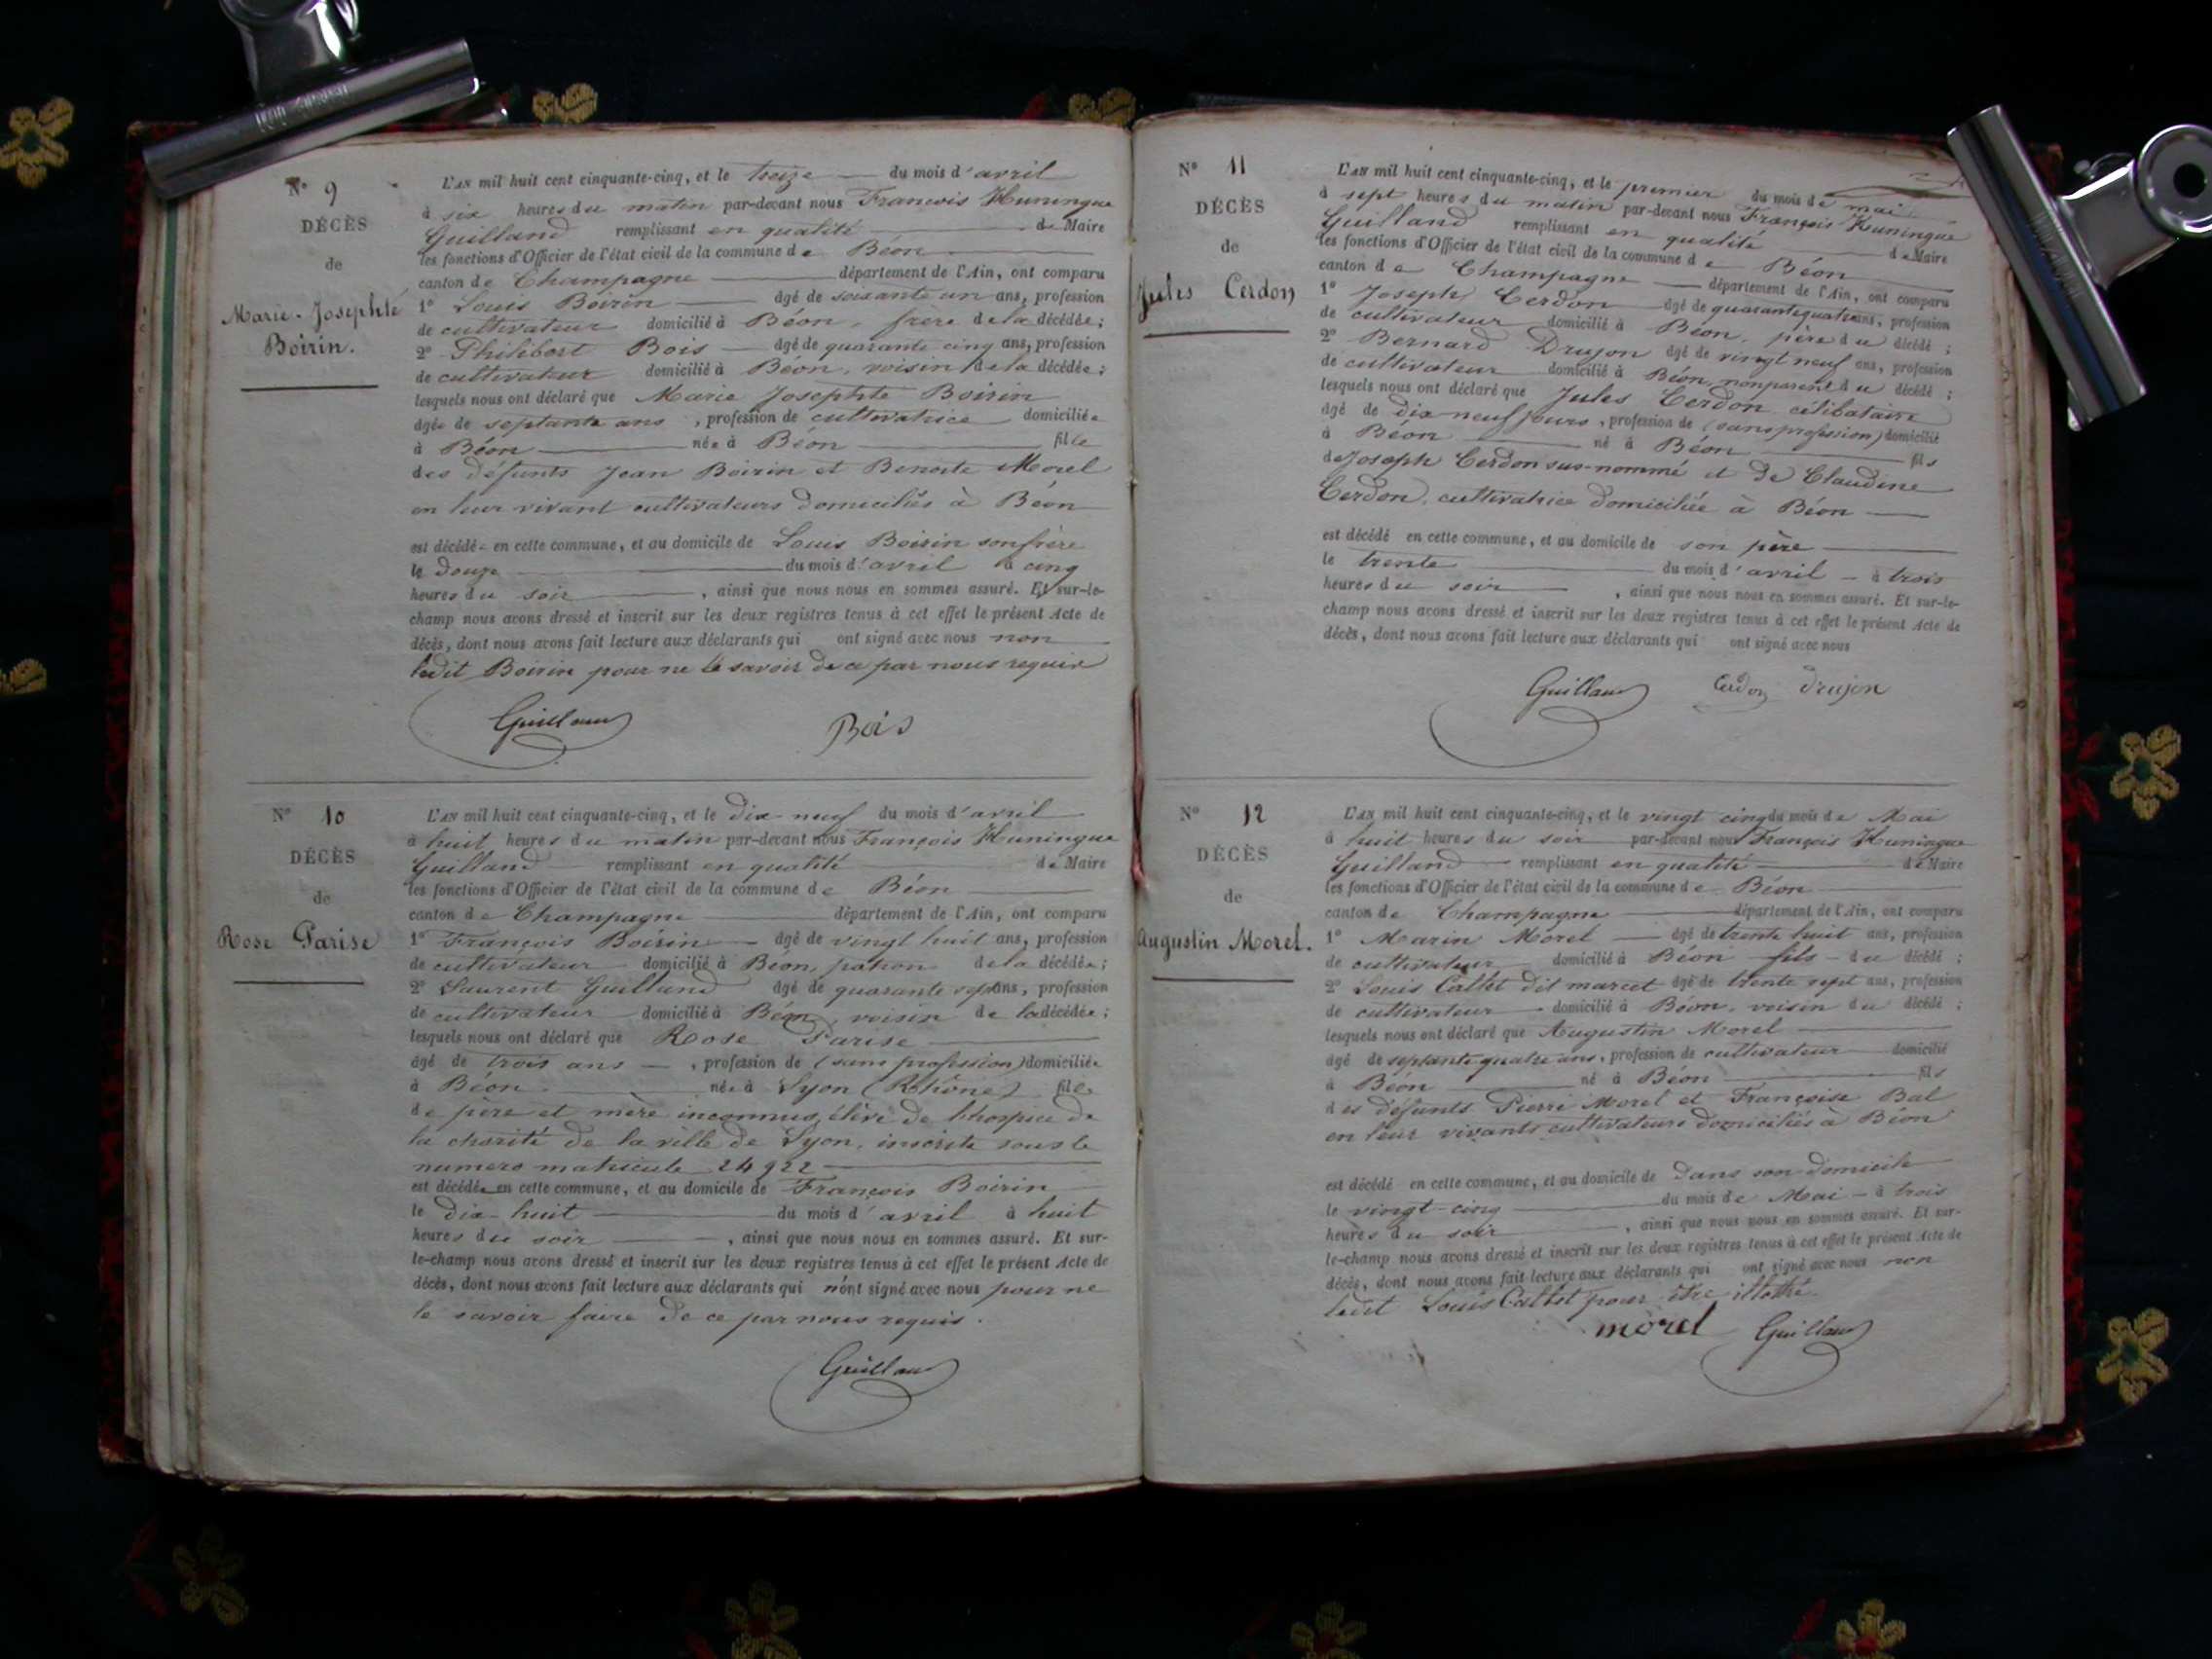 N° 9
DÉCÈS
de
Marie-Josephte
Boirin.
L'AN mil huit cent cinquante-cinq, et le treize du mois d'avril
à six heures du matin par-devant nous François Huningue
Guilland remplissant en qualité de Maire
les fonctions d'Officier de l'état civil de la commune de Béon
canton de Champagne département de l'Ain, ont comparu
1° Louis Boirin âgé de soixante un ans, profession
de cultivateur domicilié à Béon, frere de la décédée;
2° Philibert Bois âgé de quarante cinq ans, profession
de cultivateur domicilié à Béon, voisin de la décédée;
lesquels nous ont déclaré que Marie Josephte Boirin
âgée de septante ans, profession de cultivatrice domiciliée
à Béon née à Béon fille
des défunts Jean Boirin et Benoite Morel
en leur vivant cultivateurs domiciliés à Béon
est décédée en cette commune, et au domicile de Louis Boirin son frère
le douze du mois d'avril à cinq
heures du soir, ainsi que nous nous en sommes assuré. Et sur-le-
champ nous avons dressé et inscrit sur les deux registres tenus à cet effet le présent Acte de
décès, dont nous avons fait lecture aux déclarants qui ont signé avec nous non
ledit Boirin pour ne le savoir de ce par nous requis
Guilland Bois
N° 10
DÉCÈS
de
Rose Parise
L'AN mil huit cent cinquante-cinq, et le dix neuf du mois d'avril
à huit heures du matin par-devant nous François Huningue
Guilland remplissant en qualité de Maire
les fonctions d'Officier de l'état civil de la commune de Béon
canton de Champagne département de l'Ain, ont comparu
1° François Boirin âgé de vingt huit ans, profession
de cultivateur domicilié à Béon, patron de la décédée;
2° Laurent Guilland âgé de quarante sept ans, profession
de cultivateur domicilié à Béon, voisin de la décédée;
lesquels nous ont déclaré que Rose Parise
âgé de trois ans, profession de (sans profession) domiciliée
à Béon née à Lyon (Rhône) fille
de père et mère inconnus, élève de l'hospice de
la charité de la ville de Lyon, inscrite sous le
numero matricule 24922
est décédée en cette commune, et au domicile de François Boirin
le dix-huit du mois d'avril à huit
heures du soir, ainsi que nous nous en sommes assuré. Et sur-
le-champ nous avons dressé et inscrit sur les deux registres tenus à cet effet le présent Acte de
décès, dont nous avons fait lecture aux déclarants qui n'ont signé avec nous pour ne
le savoir faire de ce par nous requis.
Guilland
N° 11
DÉCÈS
de
Jules Cerdon
L'AN mil huit cent cinquante-cinq, et le premier du mois de mai
à sept heures du matin par-devant nous François Huningue
Guilland remplissant en qualité de Maire
les fonctions d'Officier de l'état civil de la commune de Béon
canton de Champagne département de l'Ain, ont comparu
1° Joseph Cerdon âgé de quarante quatre ans, profession
de cultivateur domicilié à Béon, père du décédé;
2° Bernard Drujon âgé de vingt neuf ans, profession
de cultivateur domicilié à Béon, non parent du décédé;
lesquels nous ont déclaré que Jules Cerdon célibataire
âgé de dix neuf jours, profession de (sans profession) domicilié
à Béon né à Béon fils
de Joseph Cerdon sus-nommé et de Claudine
Cerdon, cultivatrice domiciliée à Béon
est décédé en cette commune, et au domicile de son père
le trente du mois d'avril à trois
heures du soir, ainsi que nous nous en sommes assuré. Et sur-le-
champ nous avons dressé et inscrit sur les deux registres tenus à cet effet le présent Acte de
décès, dont nous avons fait lecture aux déclarants qui ont signé avec nous
Guilland Cerdon Drujon
N° 12
DÉCÈS
de
Augustin Morel.
L'AN mil huit cent cinquante-cinq, et le vingt cinq du mois de Mai
à huit heures du soir par-devant nous François Huningue
Guilland remplissant en qualité de Maire
les fonctions d'Officier de l'état civil de la commune de Béon
canton de Champagne département de l'Ain, ont comparu
1° Marin Morel âgé de trente huit ans, profession
de cultivateur domicilié à Béon fils du décédé;
2° Louis Callet dit marcet âgé de trente sept ans, profession
de cultivateur domicilié à Béon, voisin du décédé;
lesquels nous ont déclaré que Augustin Morel
âgé de septante quatre ans, profession de cultivateur domicilié
à Béon né à Béon fils
des défunts Pierre Morel et Françoise Bal
en leur vivants cultivateurs domiciliés à Béon
est décédé en cette commune, et au domicile de dans son domicile
le vingt-cinq du mois de Mai à trois
heures du soir, ainsi que nous nous en sommes assuré. Et sur-
le-champ nous avons dressé et inscrit sur les deux registres tenus à cet effet le présent Acte de
décès, dont nous avons fait lecture aux déclarants qui ont signé avec nous non
ledit Louis Callet pour être illetré
morel Guilland